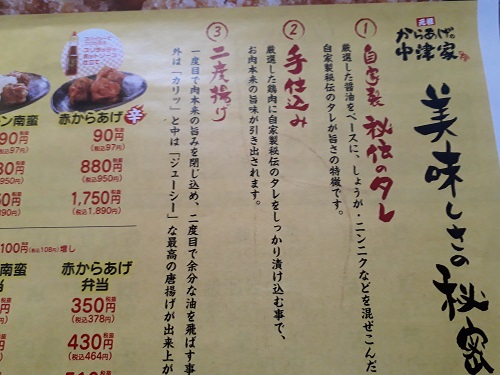 元祖
からあげの
中津家
美味しさの秘密
① 自家製 秘伝のタレ
厳選した醤油をベースに、しょうが・ニンニクなどを混ぜこんだ
自家製秘伝のタレが旨さの特徴です。
② 手仕込み
厳選した鶏肉に自家製秘伝のタレをしっかり漬け込む事で、
お肉本来の旨味が引き出されます。
③ 二度揚げ
一度目で肉本来の旨みを閉じ込め、二度目で余分な油を飛ばす事
外は「カリッ」と中は「ジューシー」な最高の唐揚げが出来上が
赤からあげ 辛
90円 税抜
(税込97円)
880円 税抜
(税込950円)
1,750円 税抜
(税込1,890円)
ン南蛮
90円 税抜
税込97円)
100円(税込108円)増し
赤からあげ
弁当
350円 税抜
(税込378円)
430円 税抜
(税込464円)
南蛮